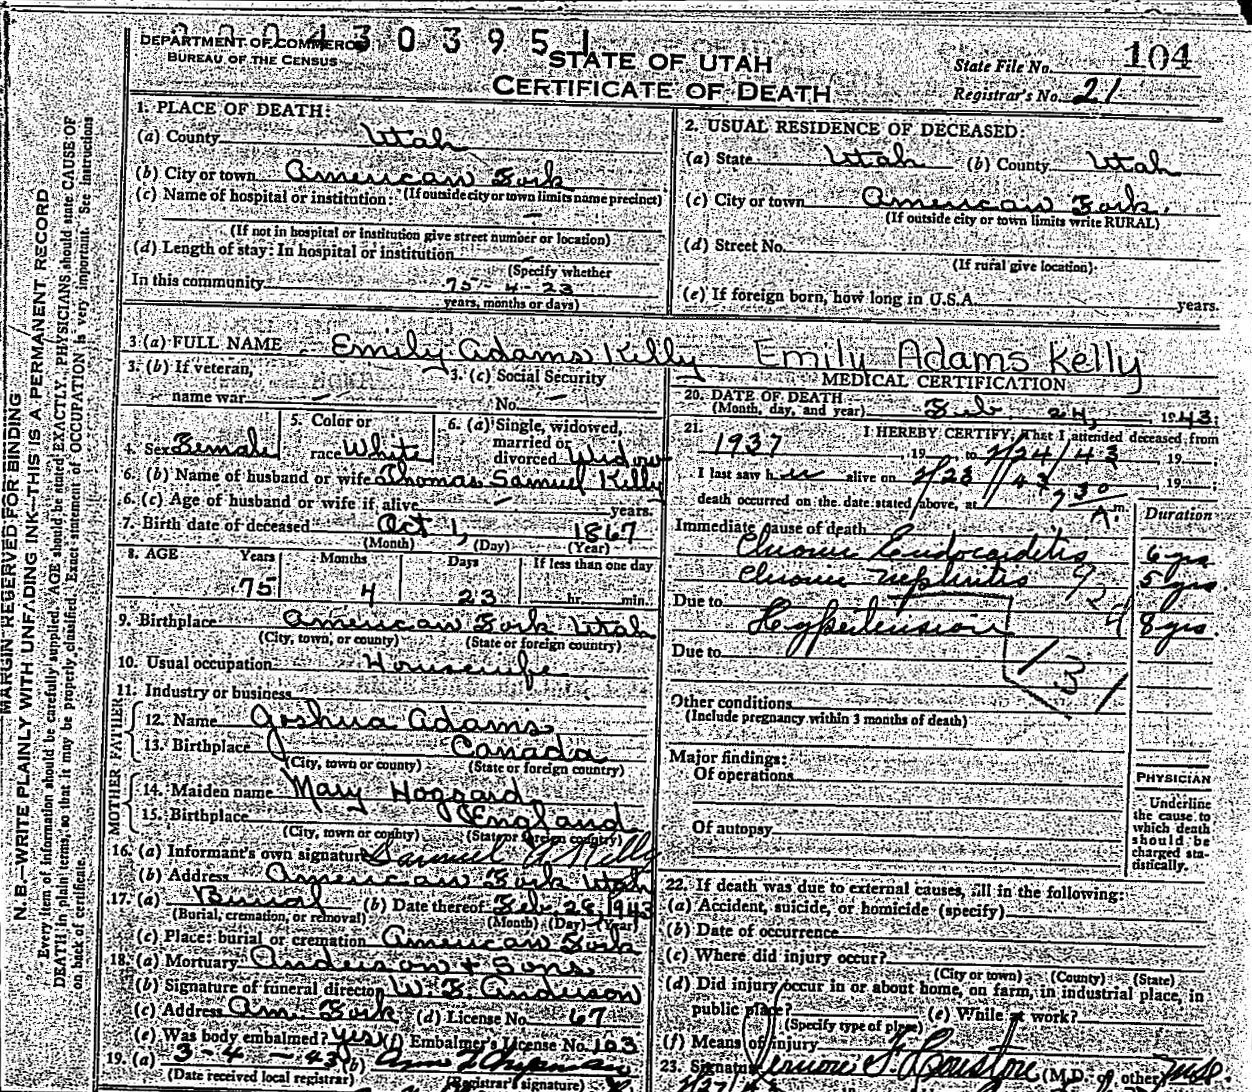 DEPARTMENT OF COMMERCE
BUREAU OF THE CENSUS
430395
STATE OF UTAH
CERTIFICATE OF DEATH
State File No. 104
Registrar's No. 21
MARGIN RESERVED FOR BINDING
N. B.—WRITE PLAINLY WITH UNFADING INK—THIS IS A PERMANENT RECORD
Every item of information should be carefully supplied. AGE should be stated EXACTLY. PHYSICIANS should state CAUSE OF
DEATH in plain terms, so that it may be properly classified. Exact statement of OCCUPATION is very important. See instructions
on back of certificate.
1. PLACE OF DEATH:
(a) County Utah
(b) City or town American Fork
(If outside city or town limits name precinct)
(c) Name of hospital or institution: —
(If not in hospital or institution give street number or location)
(d) Length of stay: In hospital or institution
(Specify whether
In this community 75-4-23
years, months or days)
2. USUAL RESIDENCE OF DECEASED:
(a) State Utah (b) County Utah
(c) City or town American Fork.
(If outside city or town limits write RURAL)
(d) Street No.
(If rural give location)
(e) If foreign born, how long in U.S.A. years.
3 (a) FULL NAME Emily Adams Kelly Emily Adams Kelly
3. (b) If veteran,
name war —
3. (c) Social Security
No. —
4. Sex Female
5. Color or
race White
6. (a) Single, widowed,
married or
divorced Widow
6. (b) Name of husband or wife Thomas Samuel Kelly
6. (c) Age of husband or wife if alive — years.
7. Birth date of deceased Oct 1, 1867
(Month) (Day) (Year)
8. AGE Years Months Days If less than one day
75 4 23 hr. min.
9. Birthplace American Fork Utah
(City, town, or county) (State or foreign country)
10. Usual occupation Housewife
11. Industry or business
FATHER
12. Name Joshua Adams
13. Birthplace Canada
(City, town or county) (State or foreign country)
MOTHER
14. Maiden name Mary Hoggard
15. Birthplace England
(City, town or county) (State or foreign country)
16. (a) Informant's own signature Samuel A Kelly
(b) Address American Fork Utah
17. (a) Burial (b) Date thereof Feb. 28, 1943
(Burial, cremation, or removal) (Month) (Day) (Year)
(c) Place: burial or cremation American Fork
18. (a) Mortuary Anderson & Sons
(b) Signature of funeral director W. E. Anderson
(c) Address Am. Fork (d) License No. 67
(e) Was body embalmed? yes (f) Embalmer's License No. 103
19. (a) 3-4-43 (b)
(Date received local registrar) (Registrar's signature)
MEDICAL CERTIFICATION
20. DATE OF DEATH
(Month, day, and year) Feb. 24, 1943.
21. I HEREBY CERTIFY, That I attended deceased from
1937, 19 to 2/24/43 19
I last saw her alive on 2/23/43, 19
death occurred on the date stated above, at 7 30 A.m.
Duration
Immediate cause of death
Chronic Endocarditis 6 yrs
Chronic Nephritis 5 yrs
Due to Hypertension 8 yrs
Due to
131
Other conditions
(Include pregnancy within 3 months of death)
Major findings:
Of operations
Of autopsy
PHYSICIAN
Underline
the cause to
which death
should be
charged sta-
tistically.
22. If death was due to external causes, fill in the following:
(a) Accident, suicide, or homicide (specify)
(b) Date of occurrence
(c) Where did injury occur?
(City or town) (County) (State)
(d) Did injury occur in or about home, on farm, in industrial place, in
public place? (e) While at work?
(Specify type of place)
(f) Means of injury
23. Signature Vernon F. Houston (M.D. or other)